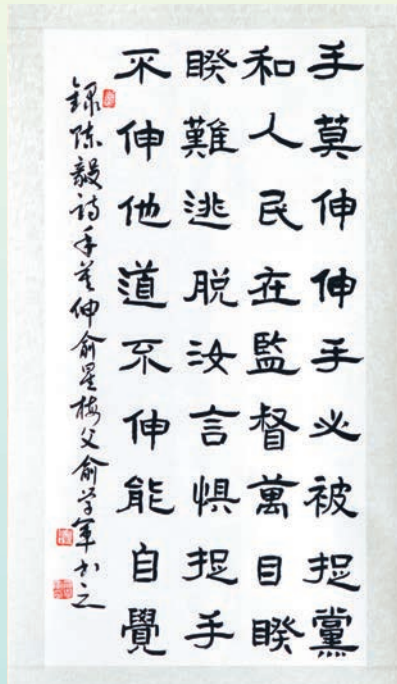 手莫伸伸手必被捉黨
和人民在監督萬目睽
睽難逃脱汝言懼捉手
不伸他道不伸能自覺
録陈毅诗手莫伸俞星梅父俞学军书之